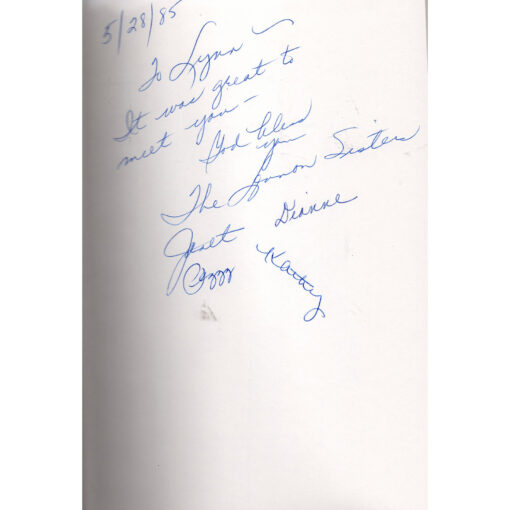 5/28/85
To Lynn —
It was great to
meet you —
God bless
you
The Lennon Sisters
Janet Dianne
Peggy Kathy